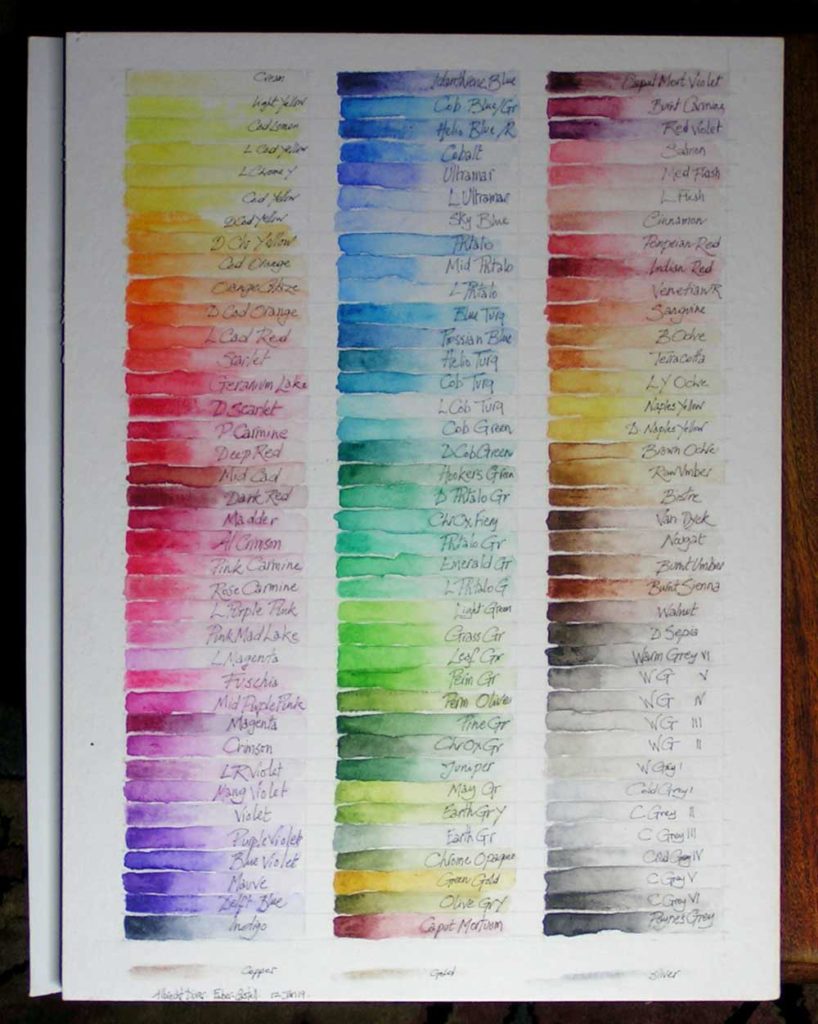 Cream
Light Yellow
Cad Lemon
L Cad Yellow
L Chrome Y
Cad Yellow
D Cad Yellow
D Chr Yellow
Cad Orange
Orange Glaze
D Cad Orange
L Cad Red
Scarlet
Geranium Lake
D Scarlet
P Carmine
Deep Red
Mid Cad
Dark Red
Madder
Al Crimson
Pink Carmine
Rose Carmine
L Purple Pink
Pink Mad Lake
L Magenta
Fuschia
Mid Purple Pink
Magenta
Crimson
L R Violet
Mang Violet
Violet
Purple Violet
Blue Violet
Mauve
Delft Blue
Indigo
Indanthrene Blue
Cob Blue/Gr
Helio Blue/R
Cobalt
Ultramar
L Ultramar
Sky Blue
Phtalo
Mid Phtalo
L Phtalo
Blue Turq
Prossian Blue
Helio Turq
Cob Turq
L Cob Turq
Cob Green
D Cob Green
Hookers Green
D Phtalo Gr
Chr Ox Fiery
Phtalo Gr
Emerald Gr
L Phtalo G
Light Green
Grass Gr
Leaf Gr
Perm Gr
Perm Olive
Pine Gr
Chr Ox Gr
Juniper
May Gr
Earth Gr Y
Earth Gr
Chrome Opaque
Green Gold
Olive Gr Y
Caput Mortuum
Caput Mort Violet
Burnt Carmine
Red Violet
Salmon
Med Flesh
L Flesh
Cinnamon
Pompeian Red
Indian Red
Venetian R
Sanguine
B Ochre
Terracotta
L Y Ochre
Naples Yellow
D. Naples Yellow
Brown Ochre
Raw Umber
Bistre
Van Dyck
Nougat
Burnt Umber
Burnt Sienna
Walnut
D Sepia
Warm Grey VI
WG V
WG IV
WG III
WG II
W Grey I
Cold Grey I
C Grey II
C Grey III
Cold Grey IV
C Grey V
C Grey VI
Paynes Grey
Copper
Gold
Silver
Albrecht Durer Faber-Castell